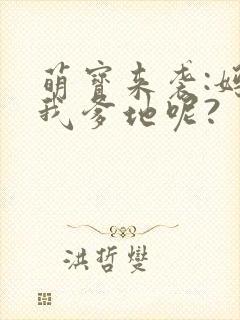 萌宝来袭:妈
我爹地呢?
洪哲燮